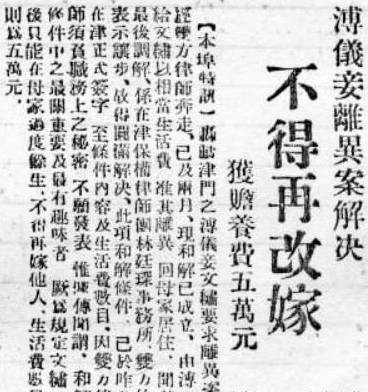 溥儀妾離異案解決
不得再改嫁
獲贍養費五萬元
【本埠特訊】轟動津門之溥儀妾文繡要求離異案
經雙方律師奔走、已及兩月、現和解已成立、由溥
給文繡以相當生活費、准其離異、回母家居住、聞
最後調解、係在津保權律師關林廷琛事務所、雙方
表示讓步、故得圓滿解決、此項和解條件、已於昨
在津正式簽字、至條件內容及生活費數目、因雙方律
師須負職務上之秘密、不願發表、惟據傳聞謂、和解
條件中之最關重要及最有趣味者、厥爲規定文繡
後只能在母家過度餘生、不得再嫁他人、生活費
則爲五萬元、